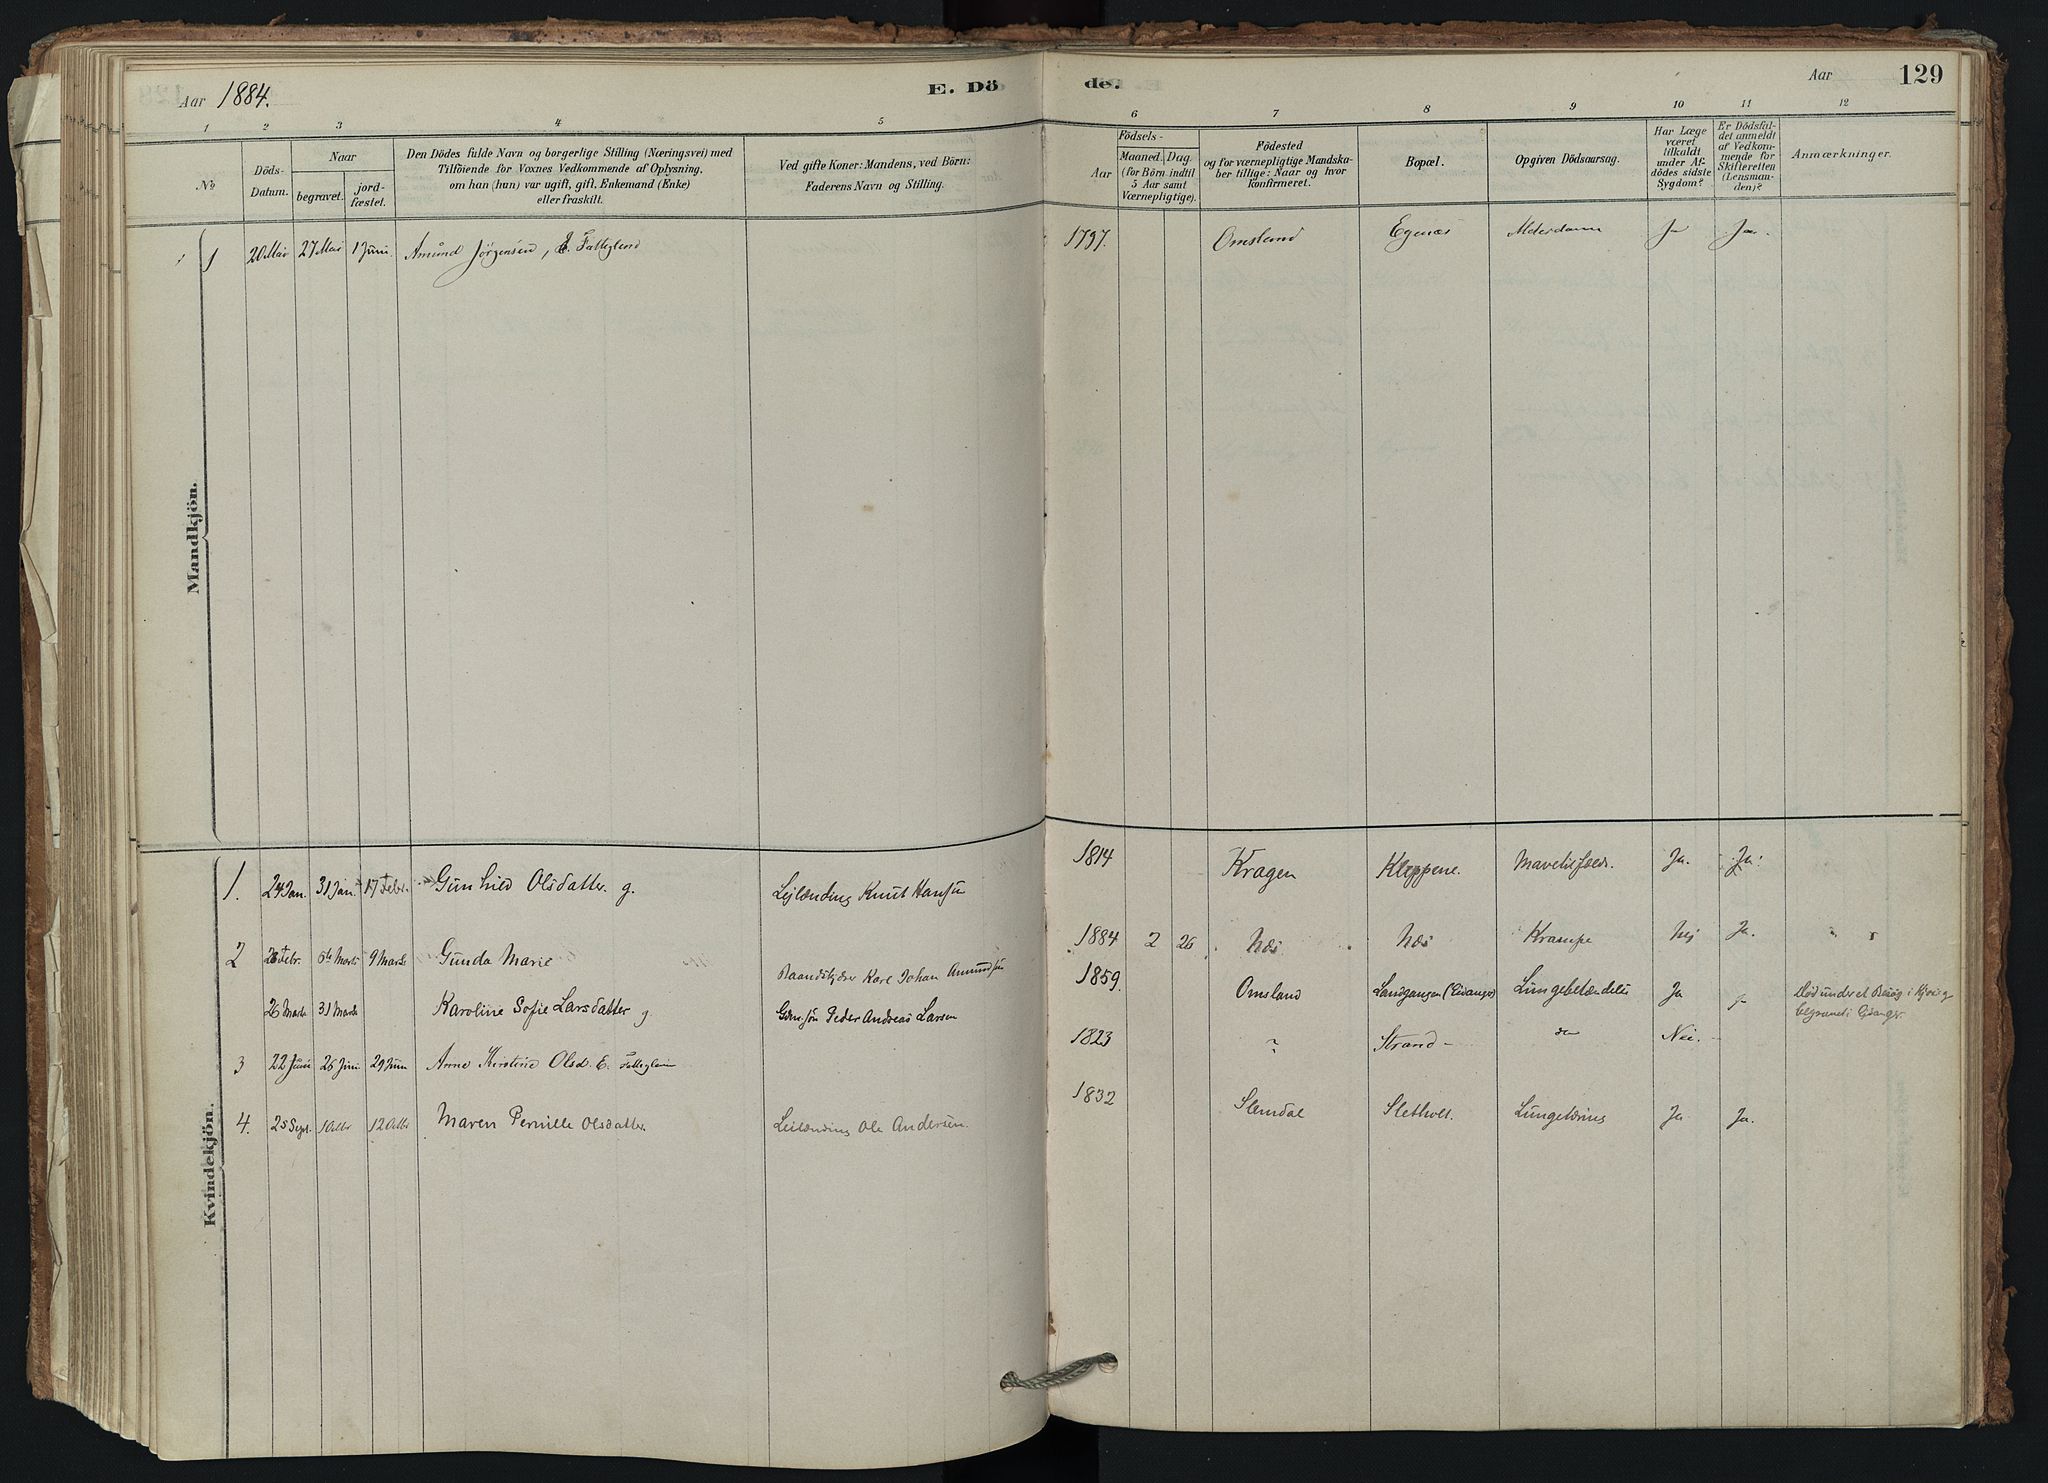 Aar 1884.
E. Dö
de.
Aar 129
1 2 3 4 5 6 7 8 9 10 11 12
No
Döds-
Datum.
Naar
begravet.
jord-
fæstet.
Den Dödes fulde Navn og borgerlige Stilling (Næringsvei) med
Tilföiende for Voxnes Vedkommende af Oplysning,
om han (hun) var ugift, gift, Enkemand (Enke)
eller fraskilt.
Ved gifte Koner: Mandens, ved Börn:
Faderens Navn og Stilling.
Aar
Födsels-
Maaned. Dag.
(for Börn indtil
5 Aar samt
Værnepligtige).
Födested
og for værnepligtige Mandska-
ber tillige: Naar og hvor
konfirmeret.
Bopæl.
Opgiven Dödsaarsag.
Har Læge
været
tilkaldt
under Af-
dödes sidste
Sygdom?
Er Dödsfal-
det anmeldt
af Vedkom-
mende for
Skifteretten
(Lensman-
den)?
Anmærkninger.
Mandkjön.
1 20 Mai 27 Mai 1 Juni Amund Jörgensen, E. Fattiglem 1797. Omsland Egenæs Alderdom Ja Ja
Kvindekjön.
1. 24 Jan. 31 Jan. 17 Febr. Gunhild Olsdatter. g. Leilænding Knut Hansen 1814 Kragerö Kleppene. Ja. Ja.
2 Febr. 6te Marts 9 Marts Gunda Marie Karl Johan Amundsen 1884 2 26 Næs Næs Krampe Nej Ja.
26 Marts 31 Marts Karoline Sofie Larsdatter g. Peder Andreas Larsen 1859. Omsland Landgangen (Eidanger) Lungebetændelse Ja Död under et Besög i
begravet i Eidanger.
3 22 Juni 26 Juni 29 Juni Anne Kirstine Olsd. E. Fattiglem 1823 ? Strand do Nei. -
4. 25 Sept. 1 Oktbr 12 Oktbr Maren Pernille Olsdatter Leilænding Ole Andersen. 1832 Slemdal Sletholt. Lungetæring Ja Ja.